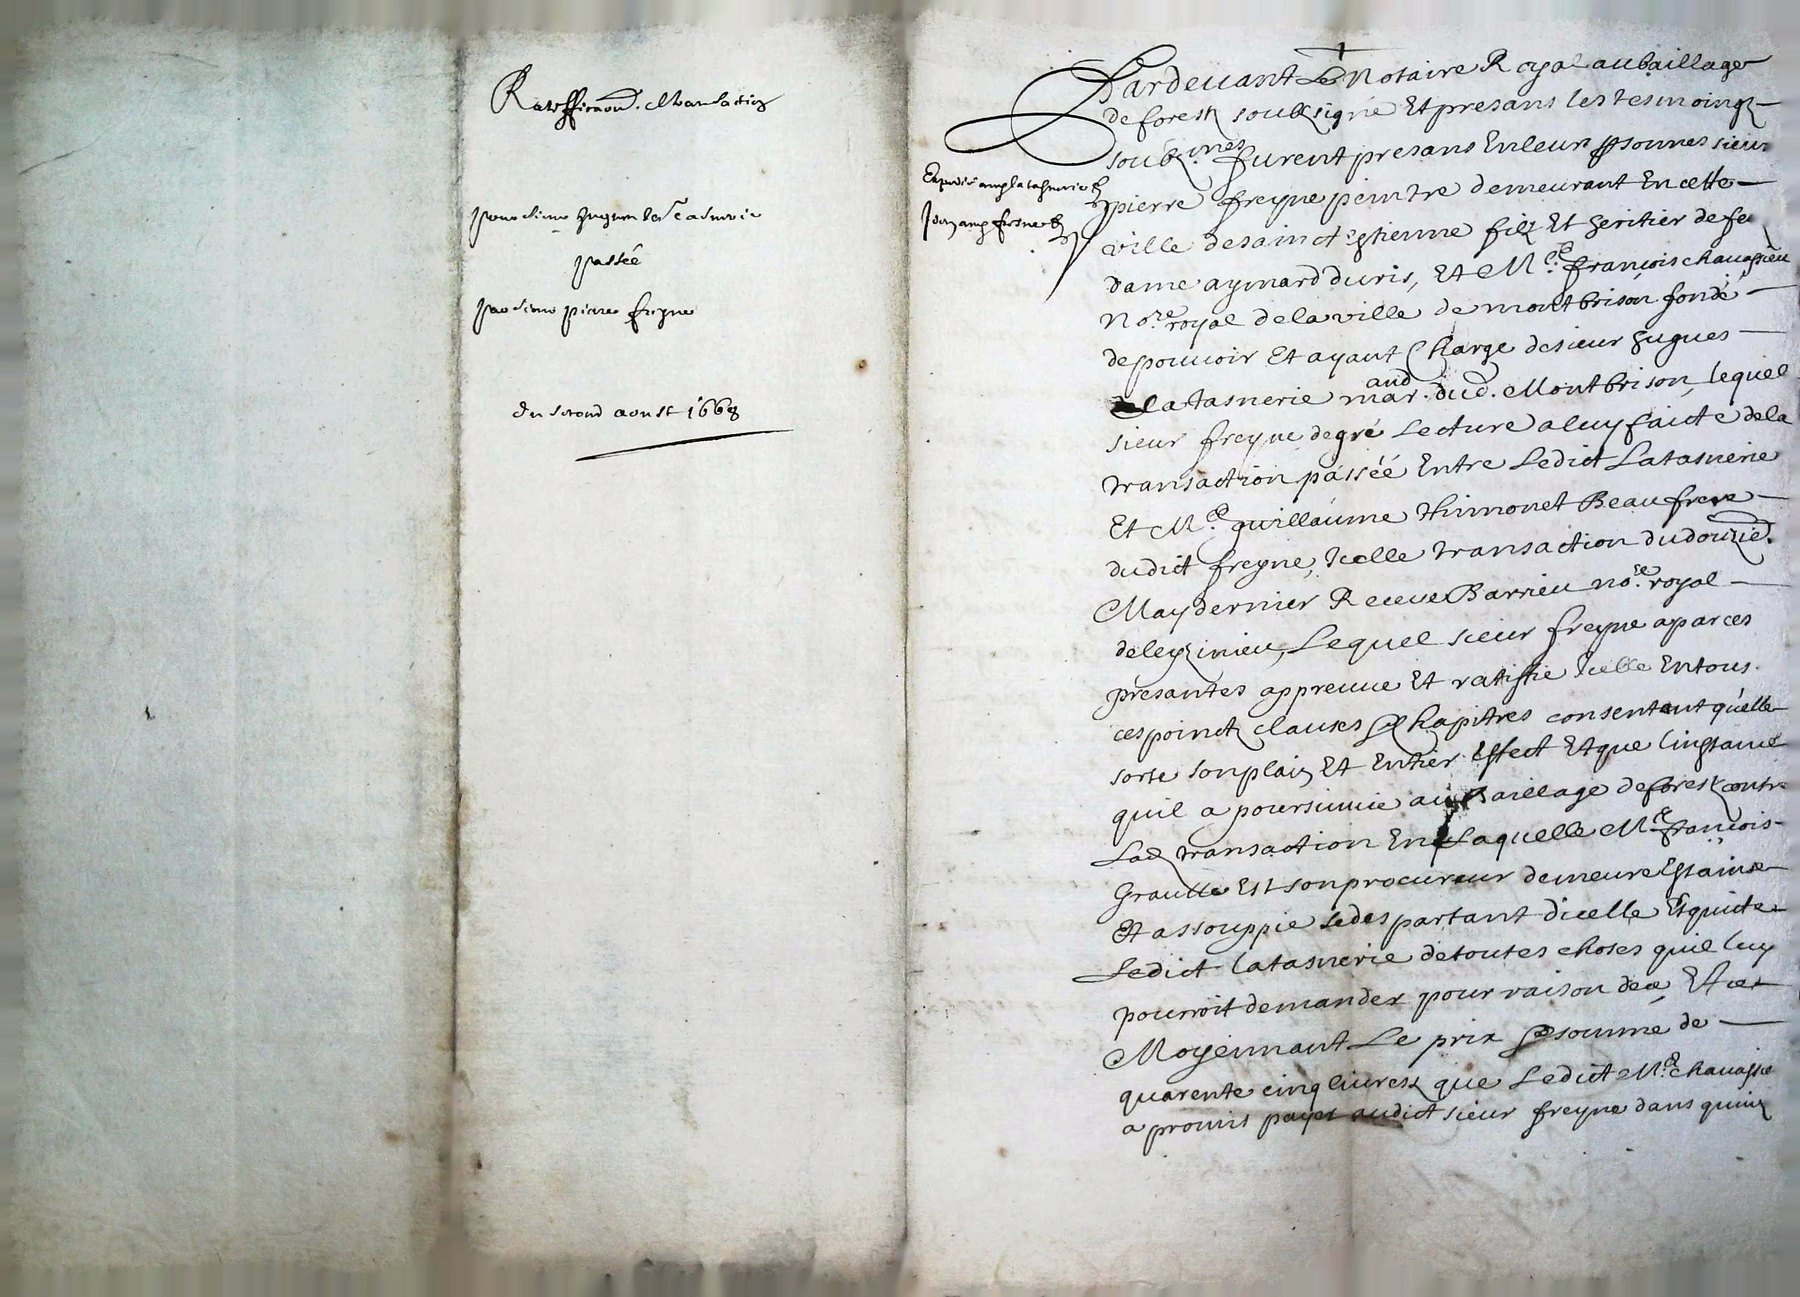 Ratifficaon. de transaction
pour sieur hugues latasnerie
passée
par sieur pierre freyne
du second aoust 1668
Expedié aud latasnerie
Pardevant Le Notaire Royal au bailliage
de forestz soubzsigné Et presans les tesmoingz
soubz.nés furent presans En leurs psonnes sieur
pierre freyne peintre demeurant En cette
ville de sainct Estienne filz Et heritier de feu
dame aymard duris, Et Me. françois chauassieu
No.re royal de la ville de montbrison fondé
de pouuoir Et ayant Charge de sieur hugues
Latasnerie marchand dud. Montbrison, lequel
sieur freyne de gré Lecture a luy faicte de la
transaction passéé Entre Ledict Latasnerie
Et Me. guillaume thimonet Beaufrere
dudict freyne, Icelle transaction du douzie.
May dernier Receue Barrieu no.re royal
de lezinieu, Lequel sieur freyne a par ces
presantes appreuue Et ratiffie Icelle En tous
ces poinctz clauses & Chapitres consentant qu'elle
sorte son plain Et Entier Effect Et que linstance
quil a poursuiuie au Baillage de forestz contre
Lad transaction En Laquelle Me. françois
Graulte Est son procureur demeure Estainte
Et assouppie se despartant dicelle Et quicte
Ledict latasnerie de toutes choses quil luy
pourroit demander pour raison de ce, Et ce
Moyennant Le prix & somme de
quarente cinq liures que Ledict Me. chauassieu
a promis payer audict sieur freyne dans quinze